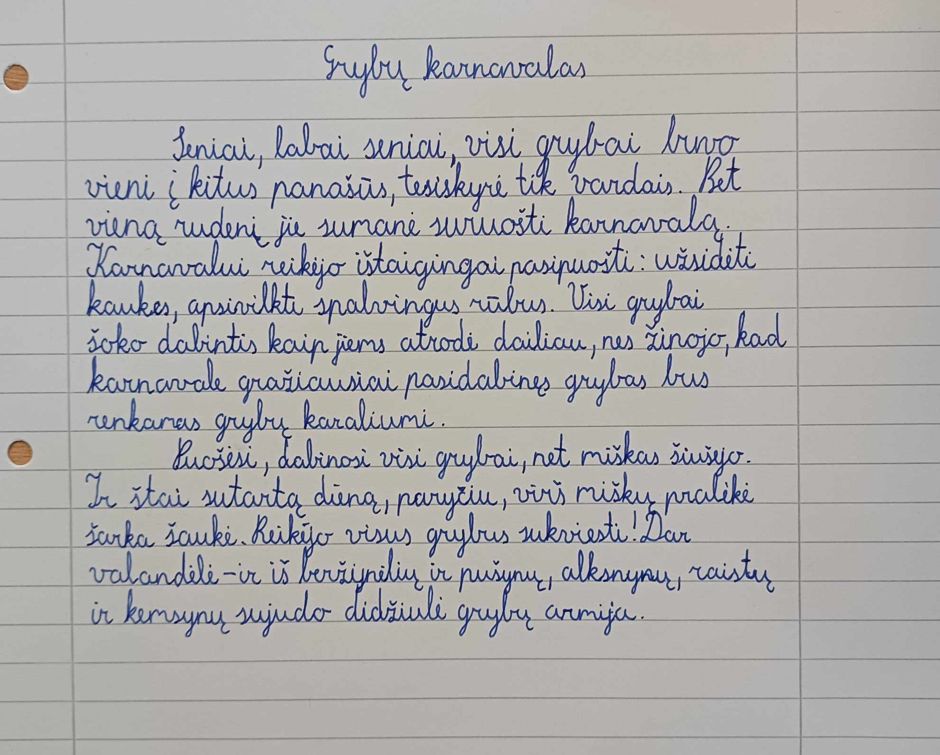 Grybų karnavalas
Seniai, labai seniai, visi grybai buvo
vieni į kitus panašūs, tesiskyrė tik vardais. Bet
vieną rudenį jie sumanė suruošti karnavalą.
Karnavalui reikėjo ištaigingai pasipuošti: užsidėti
kaukes, apsivilkti spalvingus rūbus. Visi grybai
šoko dabintis kaip jiems atrodė dailiau, nes žinojo, kad
karnavale gražiausiai pasidabinęs grybas bus
renkamas grybų karaliumi.
Puošėsi, dabinosi visi grybai, net miškas šiušėjo.
Ir štai sutartą dieną, paryčiu, virš miškų pralėkė
šarka šauklė. Reikėjo visus grybus sukviesti! Dar
valandėlė-ir iš beržynėlių ir pušynų, alksnynų, raistų
ir kemsynų sujudo didžiulė grybų armija.